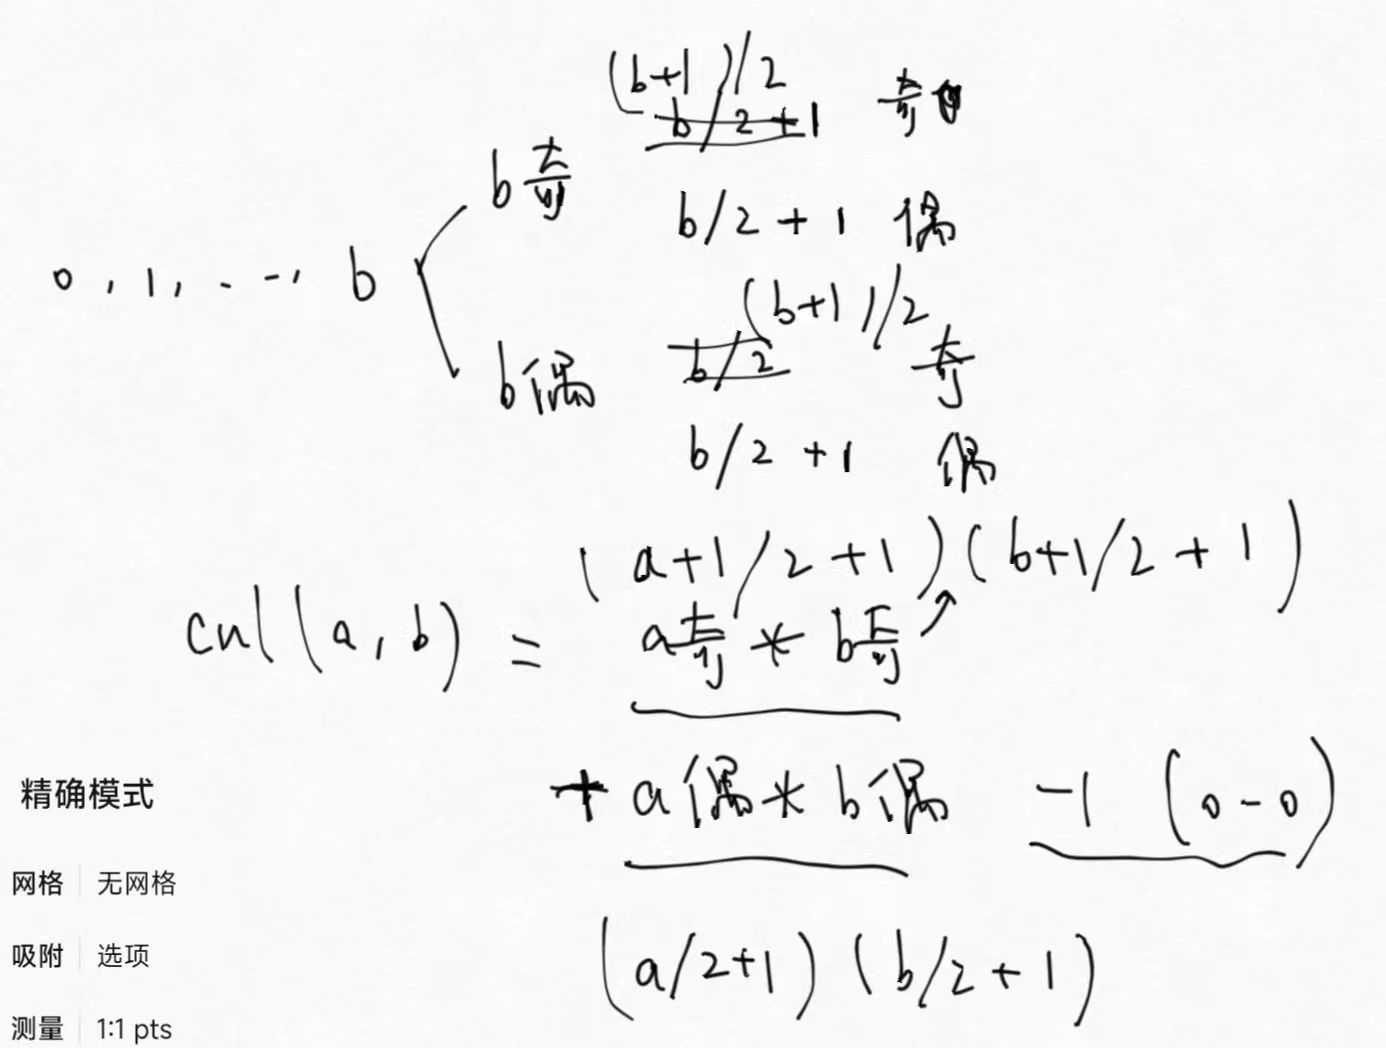 (b+1)/2
b/2+1 奇
b奇
b/2+1 偶
0,1,...,b
(b+1)/2
b/2 奇
b偶
b/2+1 偶
(a+1/2+1)(b+1/2+1)
cnl(a,b) = a奇*b奇
+a偶*b偶 -1 (0-0)
(a/2+1)(b/2+1)
精确模式
网格 无网格
吸附 选项
测量 1:1 pts